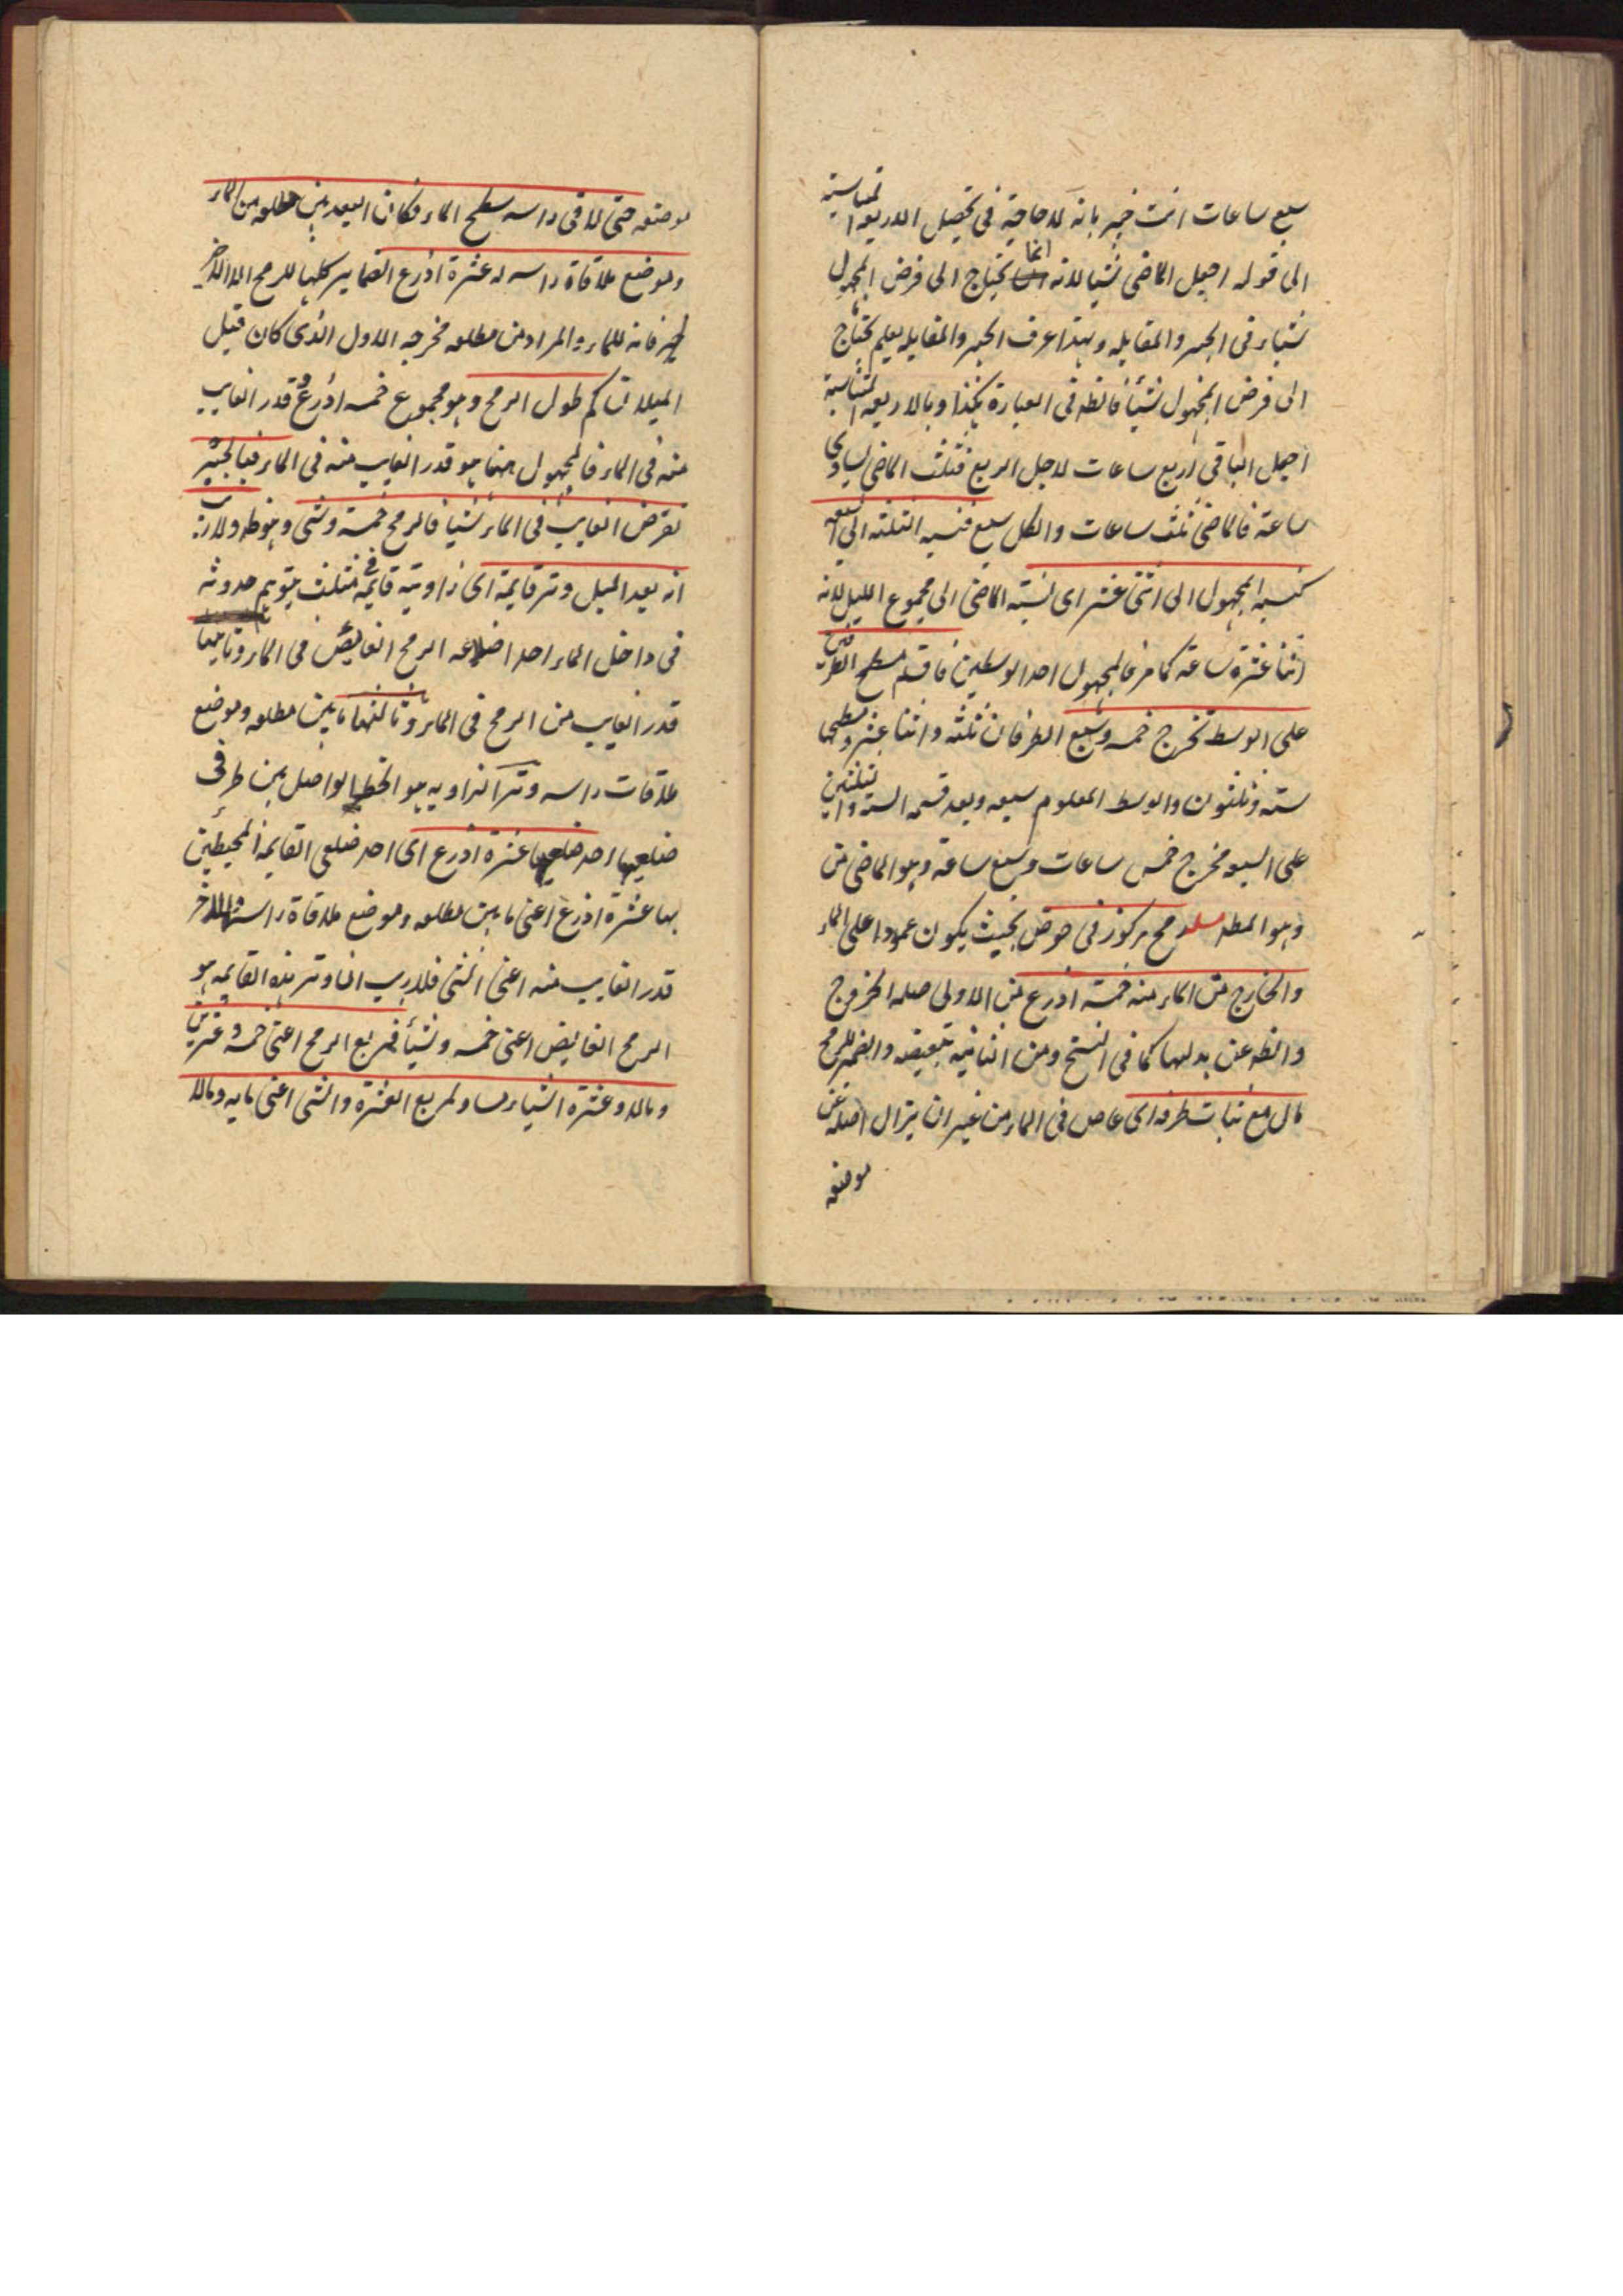 سبع ساعات انت خبير بانه لا حاجة فى تحصيل الاربعة المتناسبة
الى قوله اجعل الماضى شيئا لانه انما يحتاج الى فرض المجهول
شيئا فى الجبر والمقابله وبهذا عرف الجبر والمقابله يعلم يحتاج
الى فرض المجهول شيئا فالظ فى العبارة هكذا وبالاربعه المتناسبة
اجعل الباقى اربع ساعات لاجل الربع فثلث الماضى يساوى
ساعة فالماضى ثلث ساعات والكل سبع فنسبه الثلثه الى السبعه
كنسبه المجهول الى اثنى عشر اى نسبته الماضى الى مجموع الليل لانه
اثنا عشرة ساعة كما مر فالمجهول احد الوسطين فاقسم مسطح الطرفين
على الوسط تخرج خمسه وسبع الطرفان ثلثه واثنا عشر ومسطحها
سته وثلثون والوسط المعلوم سبعه وبعد قسمه الستة والثلثين
على السبعه مخرج خمس ساعات وسبع ساعة وهو الماضى من
وهو المطلـ مسئله رمح مركوز فى حوض بحيث يكون عمودا على الماء
والخارج من الماء منه خمسة اذرع من الاولى صله الخروج
والظ عن بدلها كما فى النسخ ومن الثانيه تبعيضه والضمير للرمح
مال مع ثبات طرفه اى غاص فى الماء من غير ان يزال اصله عن
موضعه
موضعه حتى لاقى راسه سطح الماء فكان البعد بين مطلعه من الماء
وموضع ملاقاة راسه له عشرة اذرع الضمایر كلها للرمح الا الاخير
فانه للماء والمراد من مطلعه مخرجه الاول الذى كان قبل
الميلان كم طول الرمح وهو مجموع خمسه اذرع وقدر الغايب
منه فى الماء فالمجهول هنا هو قدر الغايب منه فى الماء فبالجبر
تفرض الغايب فى الماء شيئا فالرمح خمسة وشى وهو ظ ولا ريب
انه بعد الميل وتر قايمة اى زاوية قايمه فى مثلث يتوهم حدوثه
فى داخل الماء احد اضلاعه الرمح الغايص فى الماء وثانيها
قدر الغايب من الرمح فى الماء وثالثها ما بين مطلعه وموضع
ملاقات راسه وتر الزاويه هو الخط الواصل بين طرفى
ضلعيها احد ضلعيها عشرة اذرع اى احد ضلعى القايمه المحيطين
بها عشرة اذرع اعنى ما بين مطلعه وموضع ملاقاة راسه والاخر
قدر الغايب منه اعنى الشى فلا ريب ان وتر هذه القايمه هو
الرمح الغايص اعنى خمسه وشيئا فمربع الرمح اعنى خمسه وعشرين
ومالا وعشرة اشياء مساو لمربع العشرة والشى اعنى مايه ومالا